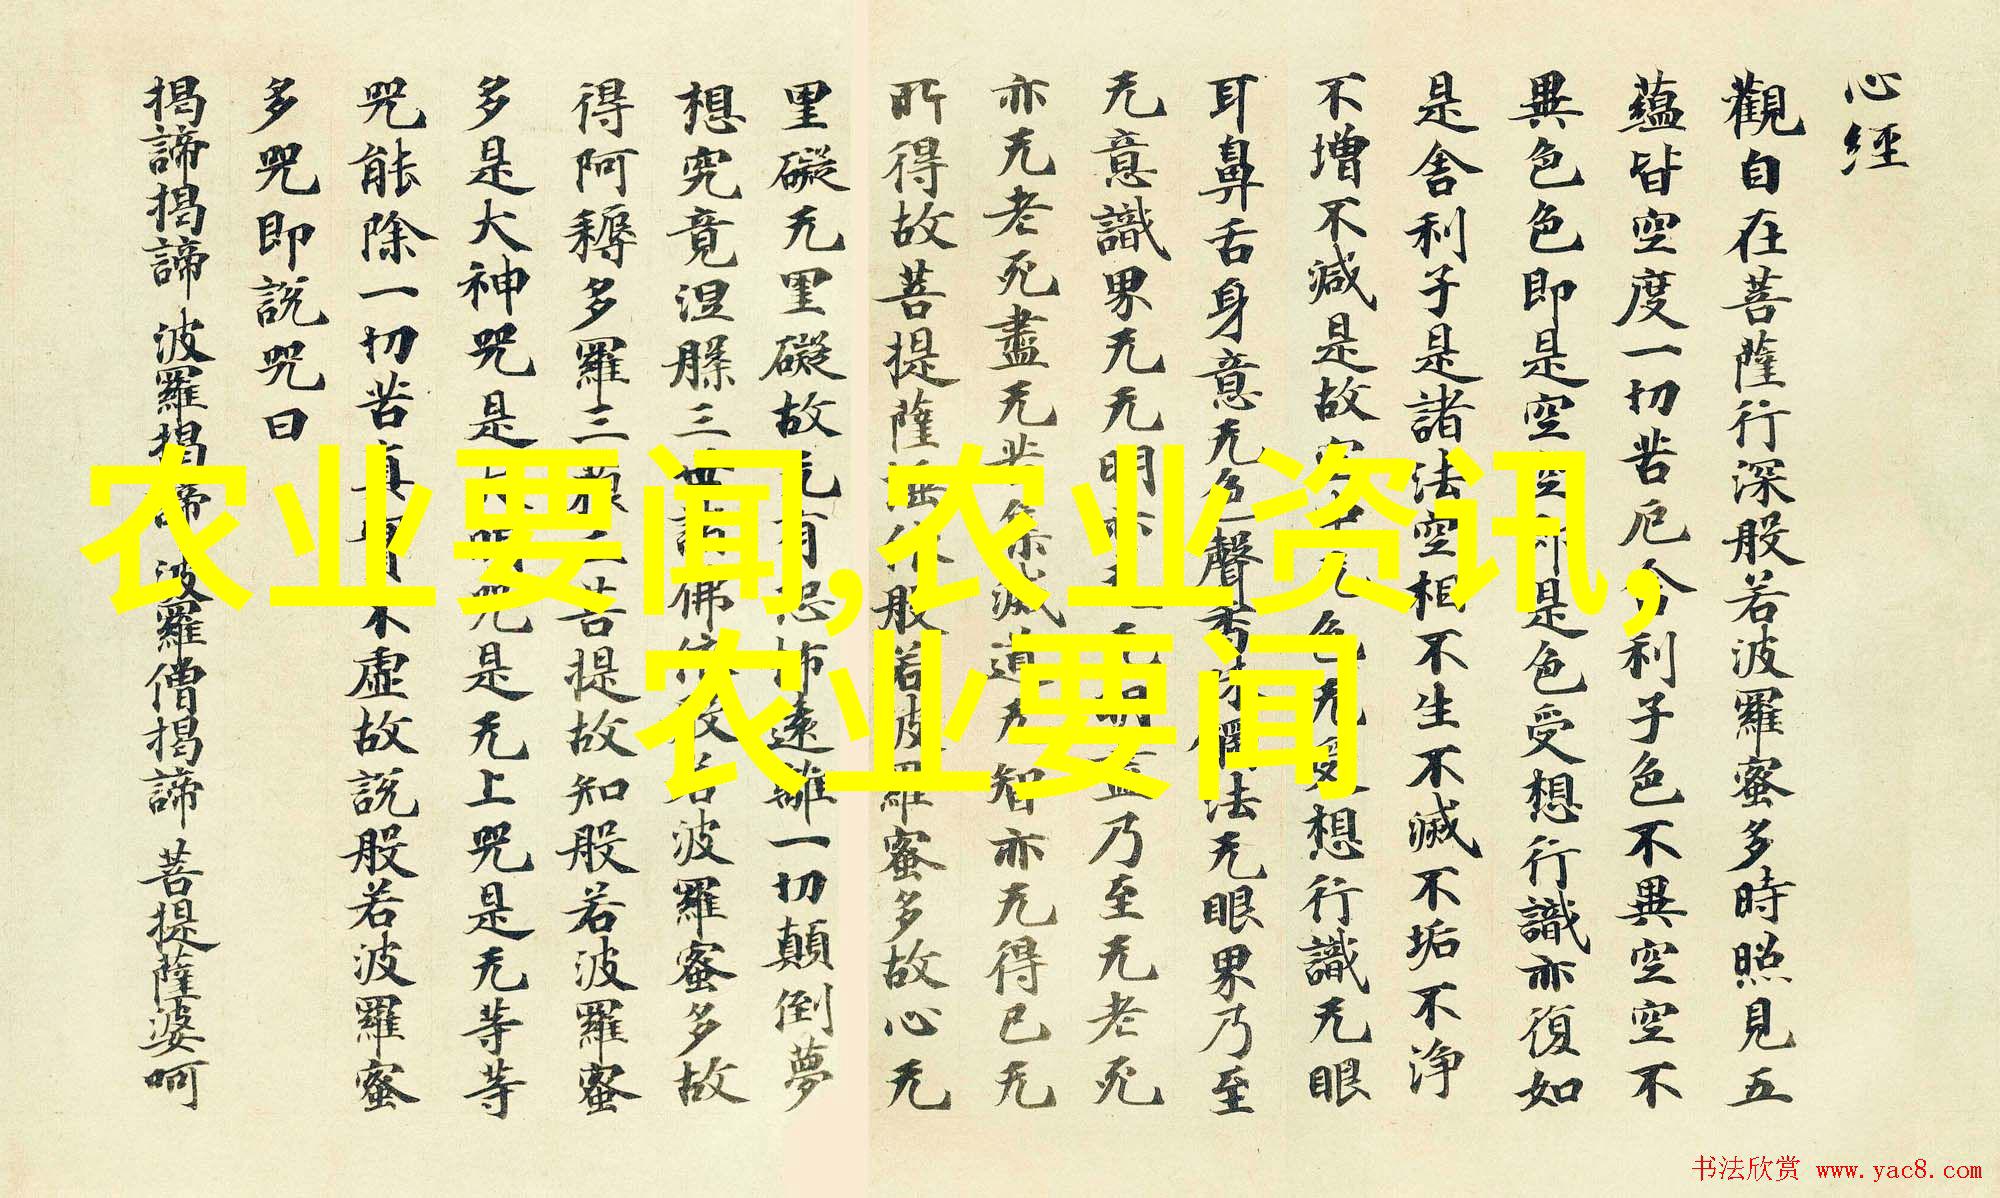 心經
觀自在菩薩行深般若波羅蜜多時照見五
蘊皆空度一切苦厄舍利子色不異空空不
異色色即是空空即是色受想行識亦復如
是舍利子是諸法空相不生不滅不垢不淨
不增不減是故空中无色无受想行識无眼
耳鼻舌身意无色聲香味觸法无眼界乃至
无意識界无无明亦无无明盡乃至无老死
亦无老死盡无苦集滅道无智亦无得已无
所得故菩提薩埵依般若波羅蜜多故心无
罣礙无罣礙故无有恐怖遠離一切顛倒夢
想究竟涅槃三世諸佛依般若波羅蜜多故
得阿耨多羅三藐三菩提故知般若波羅蜜
多是大神咒是大明咒是无上咒是无等等
咒能除一切苦真實不虛故說般若波羅蜜
多咒即說咒曰
揭諦揭諦 波羅揭諦 波羅僧揭諦 菩提薩婆呵
农业要闻,农业资讯,
农业要闻
书法欣赏 www.yac8.com